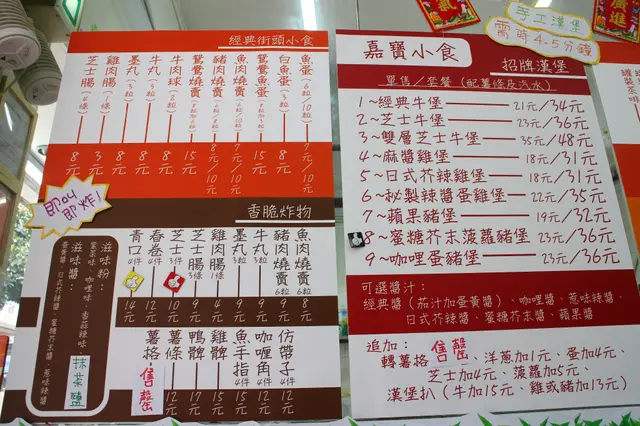 經典街頭小食
魚蛋(6粒/10粒) 7元/10元
白魚蛋(6粒) 8元
鴛鴦魚蛋 15元
魚肉燒賣(6粒/10粒) 7元/10元
豬肉燒賣(6粒/10粒) 8元/10元
鴛鴦燒賣 15元
牛肉球(8粒) 8元
牛丸(3粒) 8元
墨丸(3粒) 8元
雞肉腸 3元
芝士腸(6條) 8元
即叫即炸!
香脆炸物
魚肉燒賣6粒 8元
豬肉燒賣6粒 9元
牛丸3粒 9元
墨丸3粒 9元
雞肉腸1條 4元
芝士腸3條 9元
芝士3件 10元
春卷4件 12元
青口4件 14元
仿帶子4件 12元
咖喱角4件 12元
魚手指4件 12元
雞髀 15元
鴨髀 17元
薯條 12元
薯格 售罄
滋味粉:
紫菜味、咖哩味、香蒜辣味
抹茶鹽
滋味醬:
蛋黃醬、日式芥辣醬、蜜糖芥末醬、蔥味辣醬
手工漢堡
需時4-5分鐘
嘉寶小食
招牌漢堡
單售/套餐(配薯條及汽水)
1~經典牛堡 21元/34元
2~芝士牛堡 23元/36元
3~雙層芝士牛堡 35元/48元
4~麻醬雞堡 18元/31元
5~日式芥辣雞堡 18元/31元
6~秘製辣醬蛋雞堡 22元/35元
7~蘋果豬堡 19元/32元
8~蜜糖芥末菠蘿豬堡 23元/36元
9~咖哩蛋豬堡 23元/36元
可選醬汁:
經典醬(茄汁加蛋黃醬)、咖哩醬、蔥味辣醬、
日式芥辣醬、蜜糖芥末醬、蘋果醬
追加:
轉薯格 售罄、洋蔥加1元、蛋加4元、
芝士加4元、菠蘿加5元、
漢堡扒(牛加15元、雞或豬加13元)